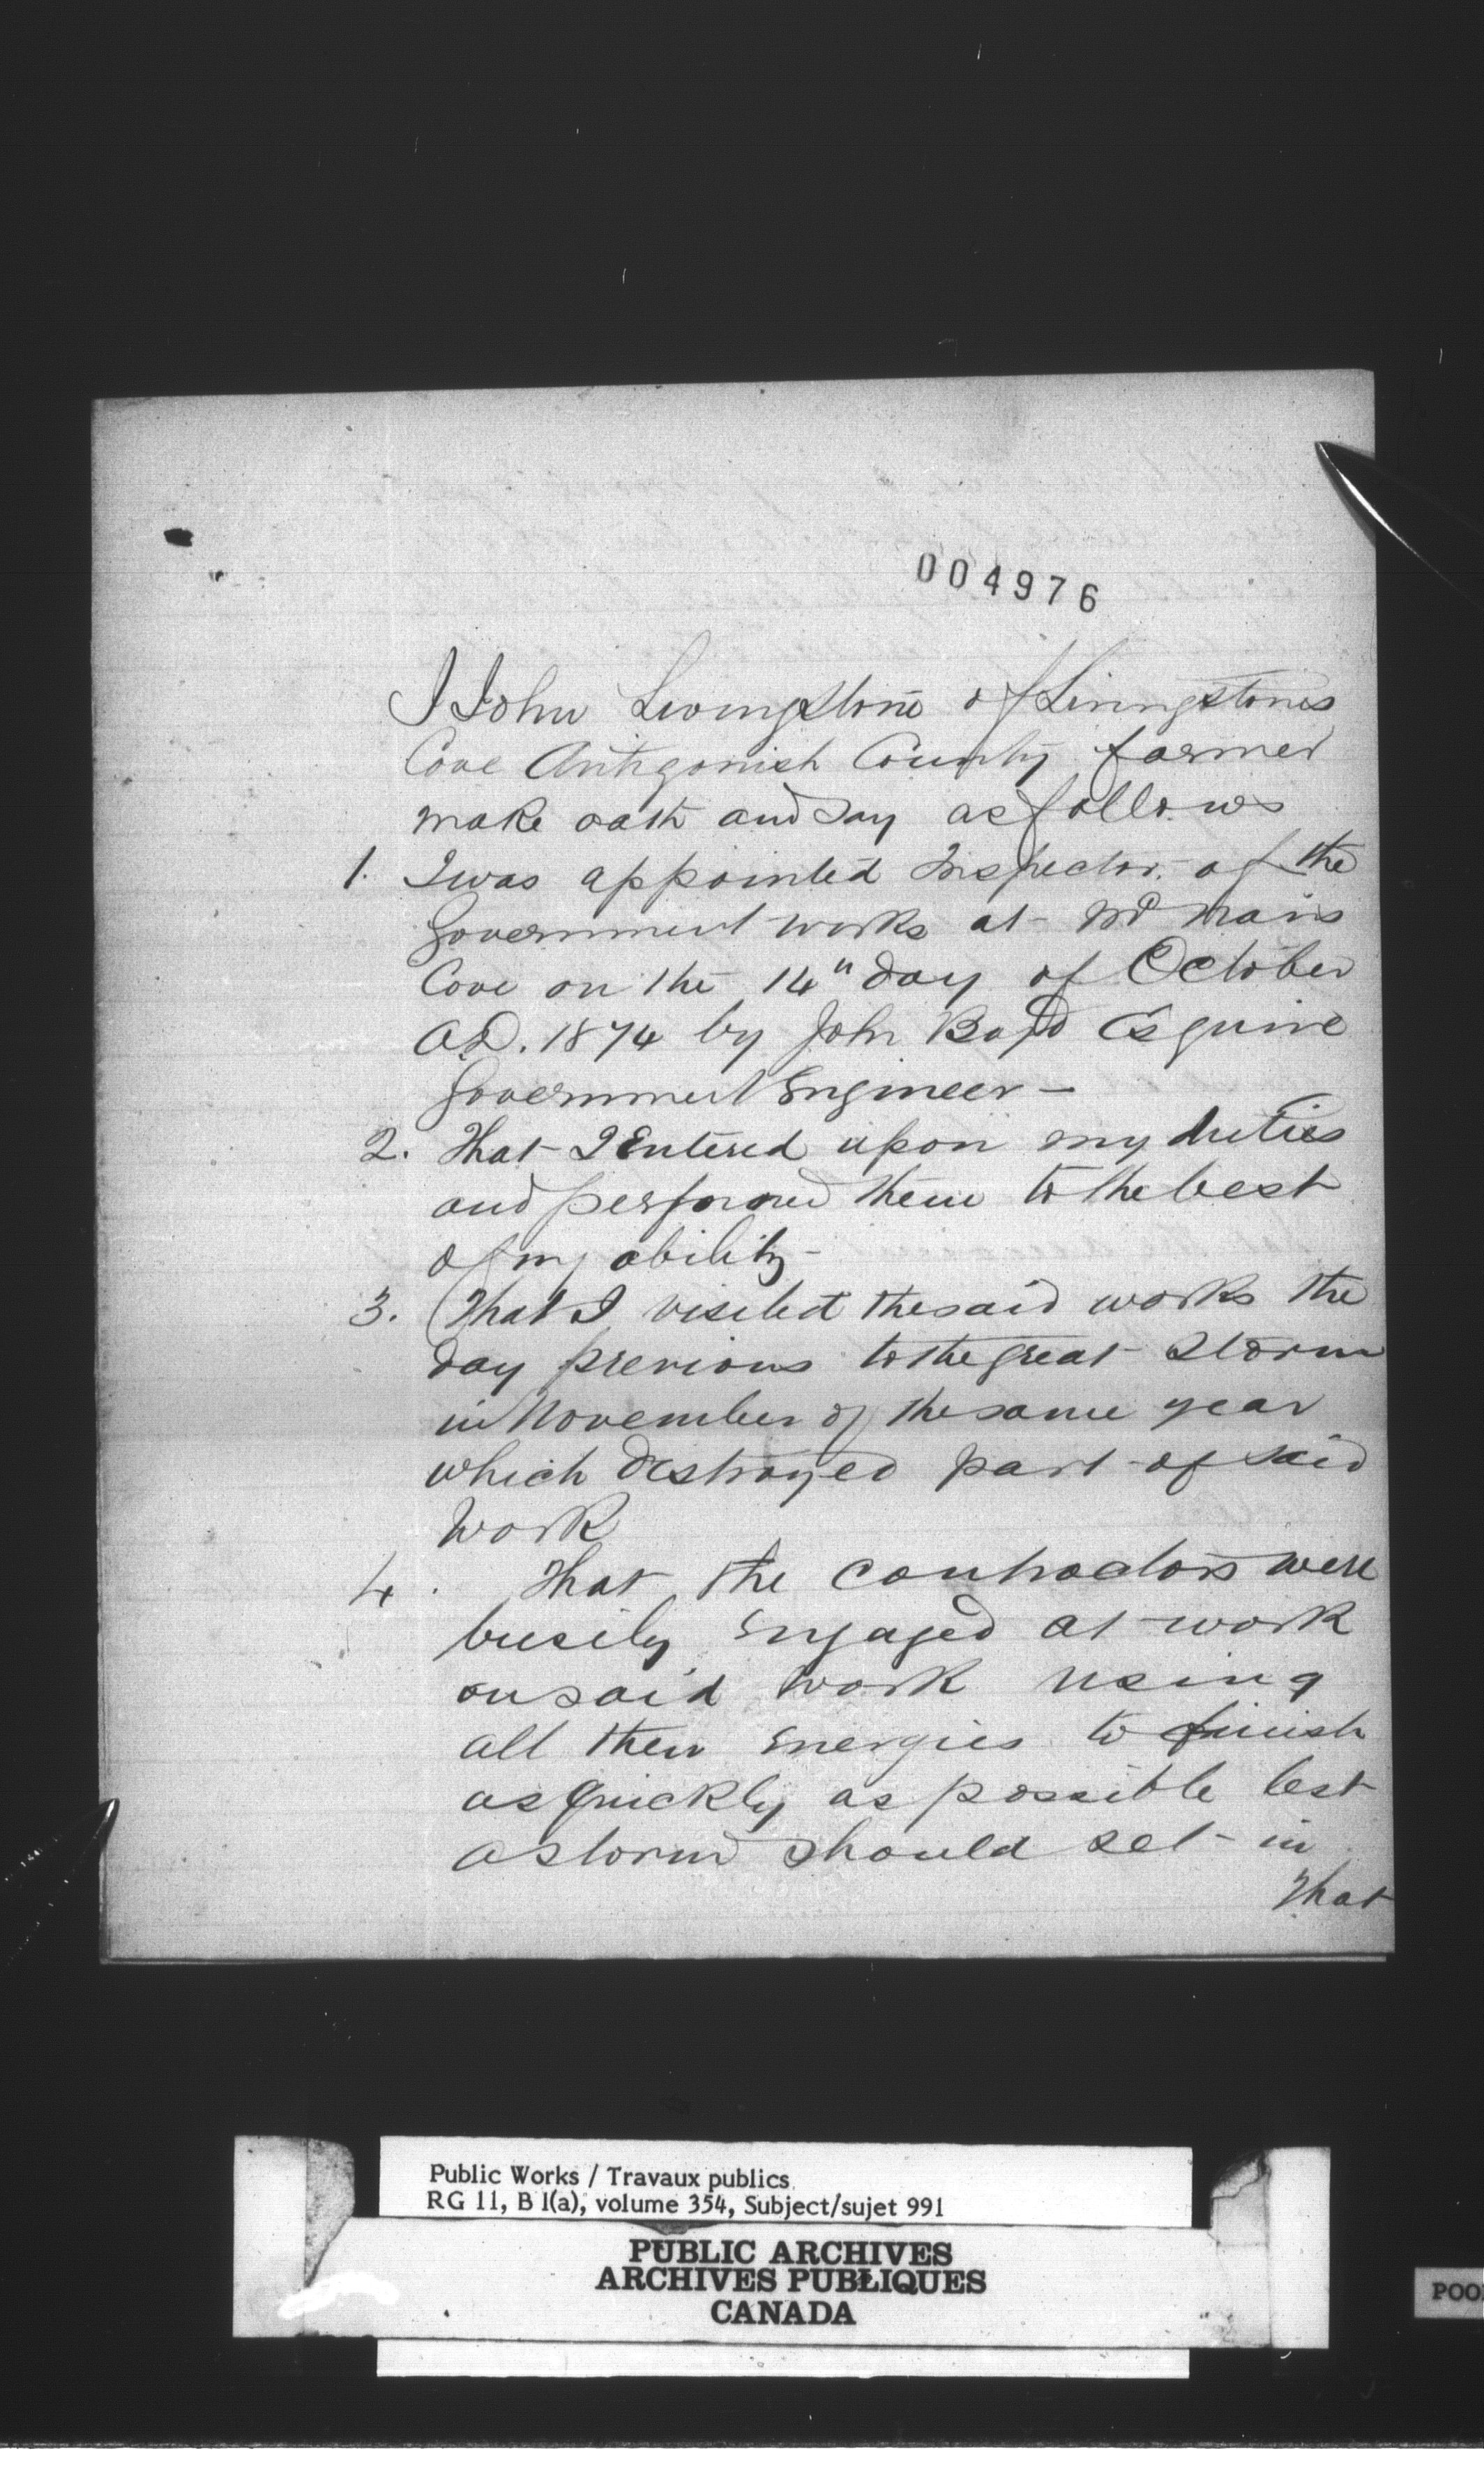 004976
I John Livingstone of Livingstones
Cove Antigonish County farmer
make oath and say as follows
1. I was appointed Inspector of the
Government works at McNairs
Cove on the 14th day of October
A.D. 1874 by John Boyd Esquire
Government Engineer –
2. That I Entered upon my duties
and performed them to the best
of my ability –
3. That I visited the said works the
day previous to the great storm
in November of the same year
which destroyed part of said
work
4. That the contractors were
busily engaged at work
on said work using
all their energies to finish
as quickly as possible lest
a storm should set in
That
Public Works / Travaux publics
RG 11, B 1(a), volume 354, Subject/sujet 991
PUBLIC ARCHIVES
ARCHIVES PUBLIQUES
CANADA